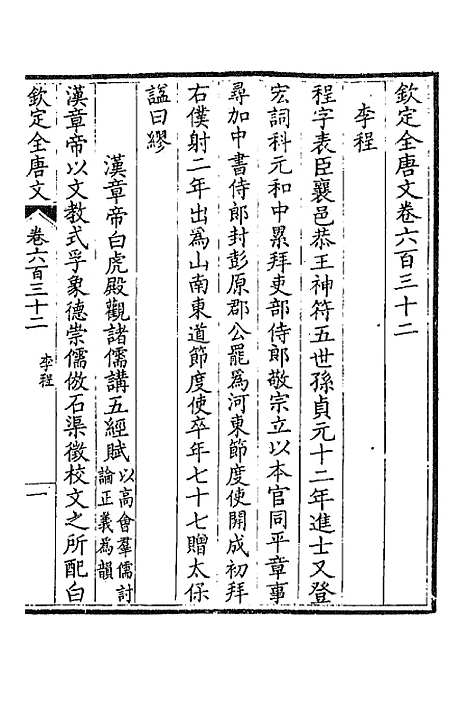 欽定全唐文卷六百三十二
李程
程字表臣襄邑恭王神符五世孫貞元十二年進士又登
宏詞科元和中累拜吏部侍郎敬宗立以本官同平章事
尋加中書侍郎封彭原郡公罷為河東節度使開成初拜
右僕射二年出為山南東道節度使卒年七十七贈太保
諡曰繆
漢章帝白虎殿觀諸儒講五經賦以高會羣儒討論正義為韻
漢章帝以文教式孚象德崇儒倣石渠徵校文之所配白
欽定全唐文 卷六百三十二 李程 一